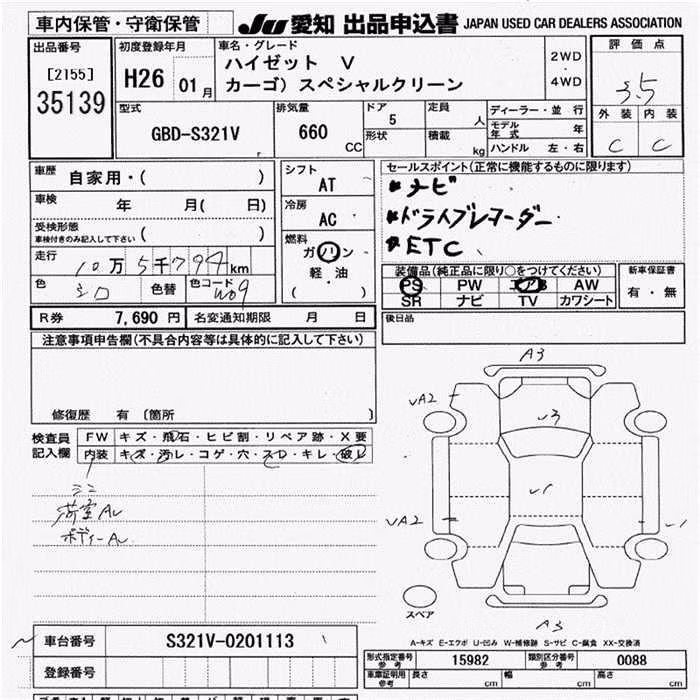 車内保管・守衛保管
JU 愛知 出品申込書 JAPAN USED CAR DEALERS ASSOCIATION
出品番号
[2155]
35139
初度登録年月
H26 01月
車名・グレード
ハイゼット V
カーゴ) スペシャルクリーン
2WD
・
4WD
評価点
3.5
外装 内装
C C
型式
GBD-S321V
排気量
660
CC
ドア
5
形状
定員
人
積載
kg
ディーラー・並 行
モデル年式 年
ハンドル 左・右
車歴 自家用・( )
車検 年 月( 日)
受検形態
車検付きのみ記入して下さい ( )
走行 10万5千794km
色 シロ 色替 色コード W09
シフト
AT
冷房
AC
燃料
ガソリン
・
軽・油
( )
セールスポイント(正常に機能するものに限ります)
*ナビ
*ドライブレコーダー
*ETC
装備品(純正品に限り○をつけてください)
PS PW エアB AW
SR ナビ TV カワシート
新車保証書
有・無
後日品
R券 7,690 円 名変通知期限 月 日
注意事項申告欄(不具合内容等は具体的に記入して下さい)
修復歴 有 〔箇所 〕
検査員
記入欄
FW キズ・飛石・ヒビ割・リペア跡・X要
内装 キズ・汚レ・コゲ・穴・スレ・キレ・破レ
シミ
荷室AU
ボディーAU
A3
UA2
U3
U1
UA2
U1
スペア
A3
A-キズ E-エクボ U-凹み W-補修跡 S-サビ C-腐食 XX-交換済
車台番号 S321V-0201113
登録番号
形式指定番号
参考
15982
類別区分番号
参考
0088
車庫証明用
参考
長さ cm 幅 cm 高さ cm